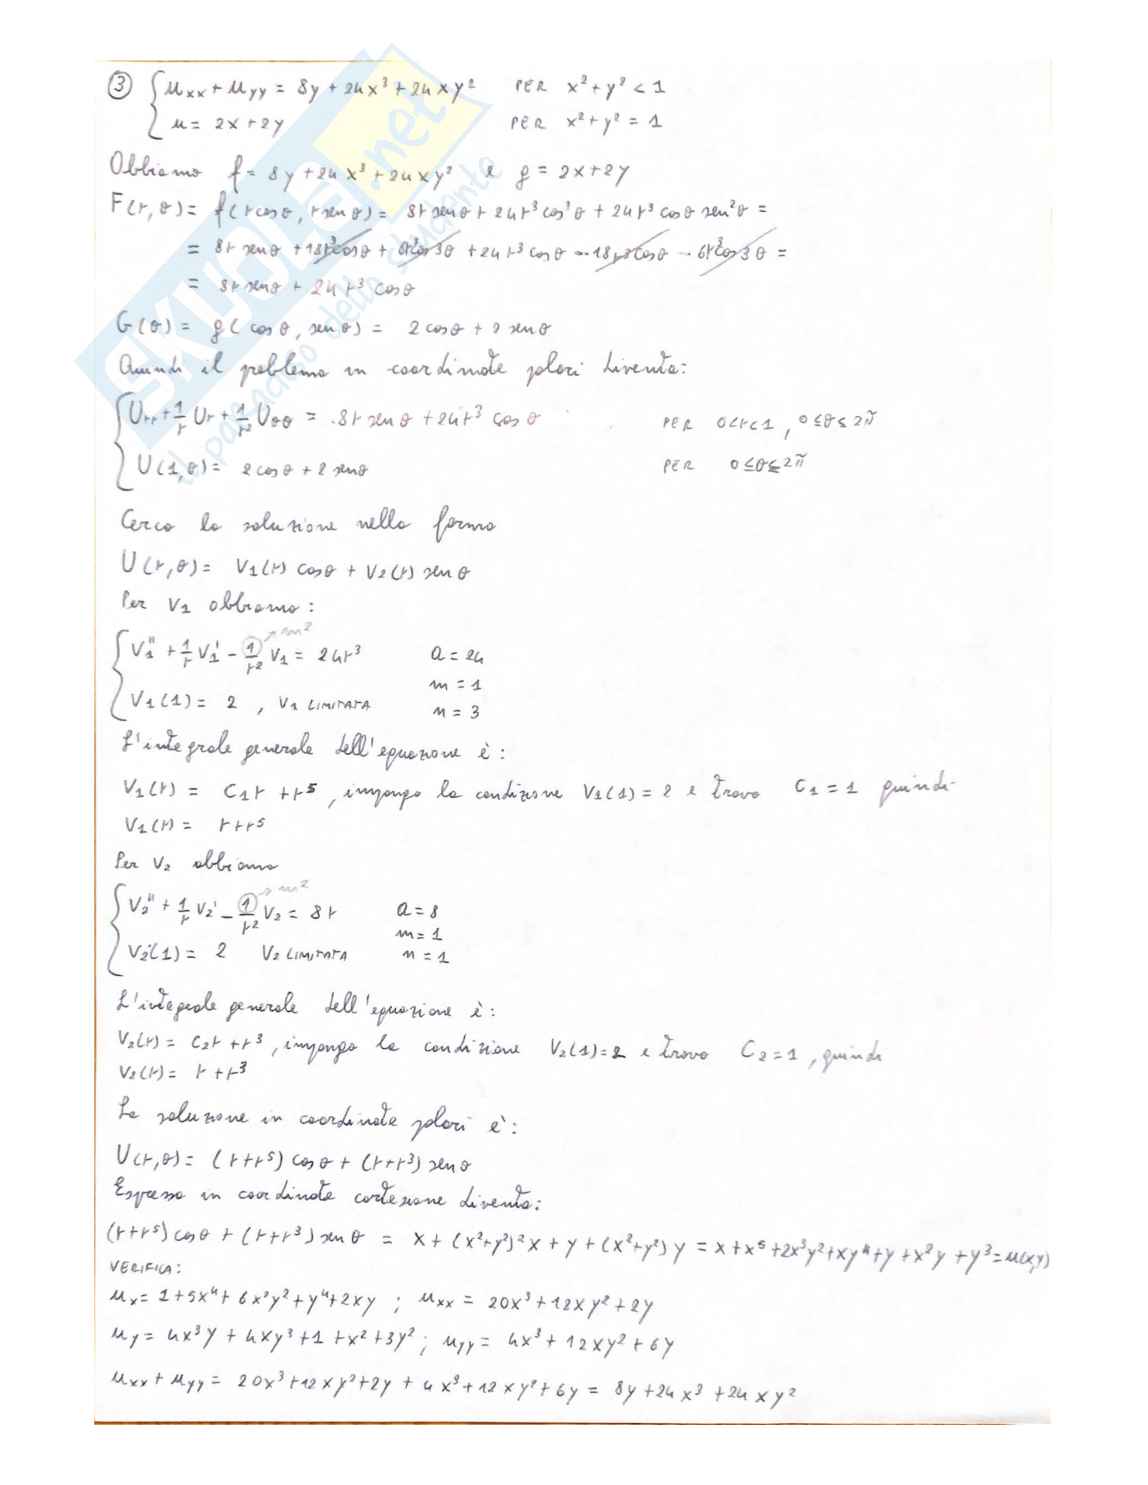 ③ { u_xx + u_yy = 8y + 24x³ + 24xy² PER x² + y² < 1
u = 2x + 2y PER x² + y² = 1
Abbiamo f = 8y + 24x³ + 24xy² e g = 2x + 2y
F(r, θ) = f(r cos θ, r sen θ) = 8r sen θ + 24r³ cos³ θ + 24r³ cos θ sen² θ =
= 8r sen θ + 18r³ cos θ + 6r³ cos 3θ + 24r³ cos θ - 18r³ cos θ - 6r³ cos 3θ =
= 8r sen θ + 24r³ cos θ
G(θ) = g(cos θ, sen θ) = 2 cos θ + 2 sen θ
Quindi il problema in coordinate polari diventa:
{ U_rr + 1/r U_r + 1/r² U_θθ = 8r sen θ + 24r³ cos θ PER 0 < r < 1, 0 ≤ θ ≤ 2π
U(1, θ) = 2 cos θ + 2 sen θ PER 0 ≤ θ ≤ 2π
Cerco la soluzione nella forma
U(r, θ) = V₁(r) cos θ + V₂(r) sen θ
Per V₁ abbiamo:
{ V₁'' + 1/r V₁' - 1/r² V₁ = 24r³ → m² a = 24
m = 1
V₁(1) = 2, V₁ LIMITATA n = 3
L'integrale generale dell'equazione è:
V₁(r) = C₁r + r⁵, impongo la condizione V₁(1) = 2 e trovo C₁ = 1 quindi
V₁(r) = r + r⁵
Per V₂ abbiamo
{ V₂'' + 1/r V₂' - 1/r² V₂ = 8r → m² a = 8
m = 1
V₂(1) = 2 V₂ LIMITATA n = 1
L'integrale generale dell'equazione è:
V₂(r) = C₂r + r³, impongo la condizione V₂(1) = 2 e trovo C₂ = 1, quindi
V₂(r) = r + r³
La soluzione in coordinate polari è:
U(r, θ) = (r + r⁵) cos θ + (r + r³) sen θ
Espressa in coordinate cartesiane diventa:
(r + r⁵) cos θ + (r + r³) sen θ = x + (x² + y²)² x + y + (x² + y²) y = x + x⁵ + 2x³y² + xy⁴ + y + x²y + y³ = u(x,y)
VERIFICA:
u_x = 1 + 5x⁴ + 6x²y² + y⁴ + 2xy ; u_xx = 20x³ + 12xy² + 2y
u_y = 4x³y + 4xy³ + 1 + x² + 3y² ; u_yy = 4x³ + 12xy² + 6y
u_xx + u_yy = 20x³ + 12xy² + 2y + 4x³ + 12xy² + 6y = 8y + 24x³ + 24xy²
SKUOLA.net
il paradiso dello studente